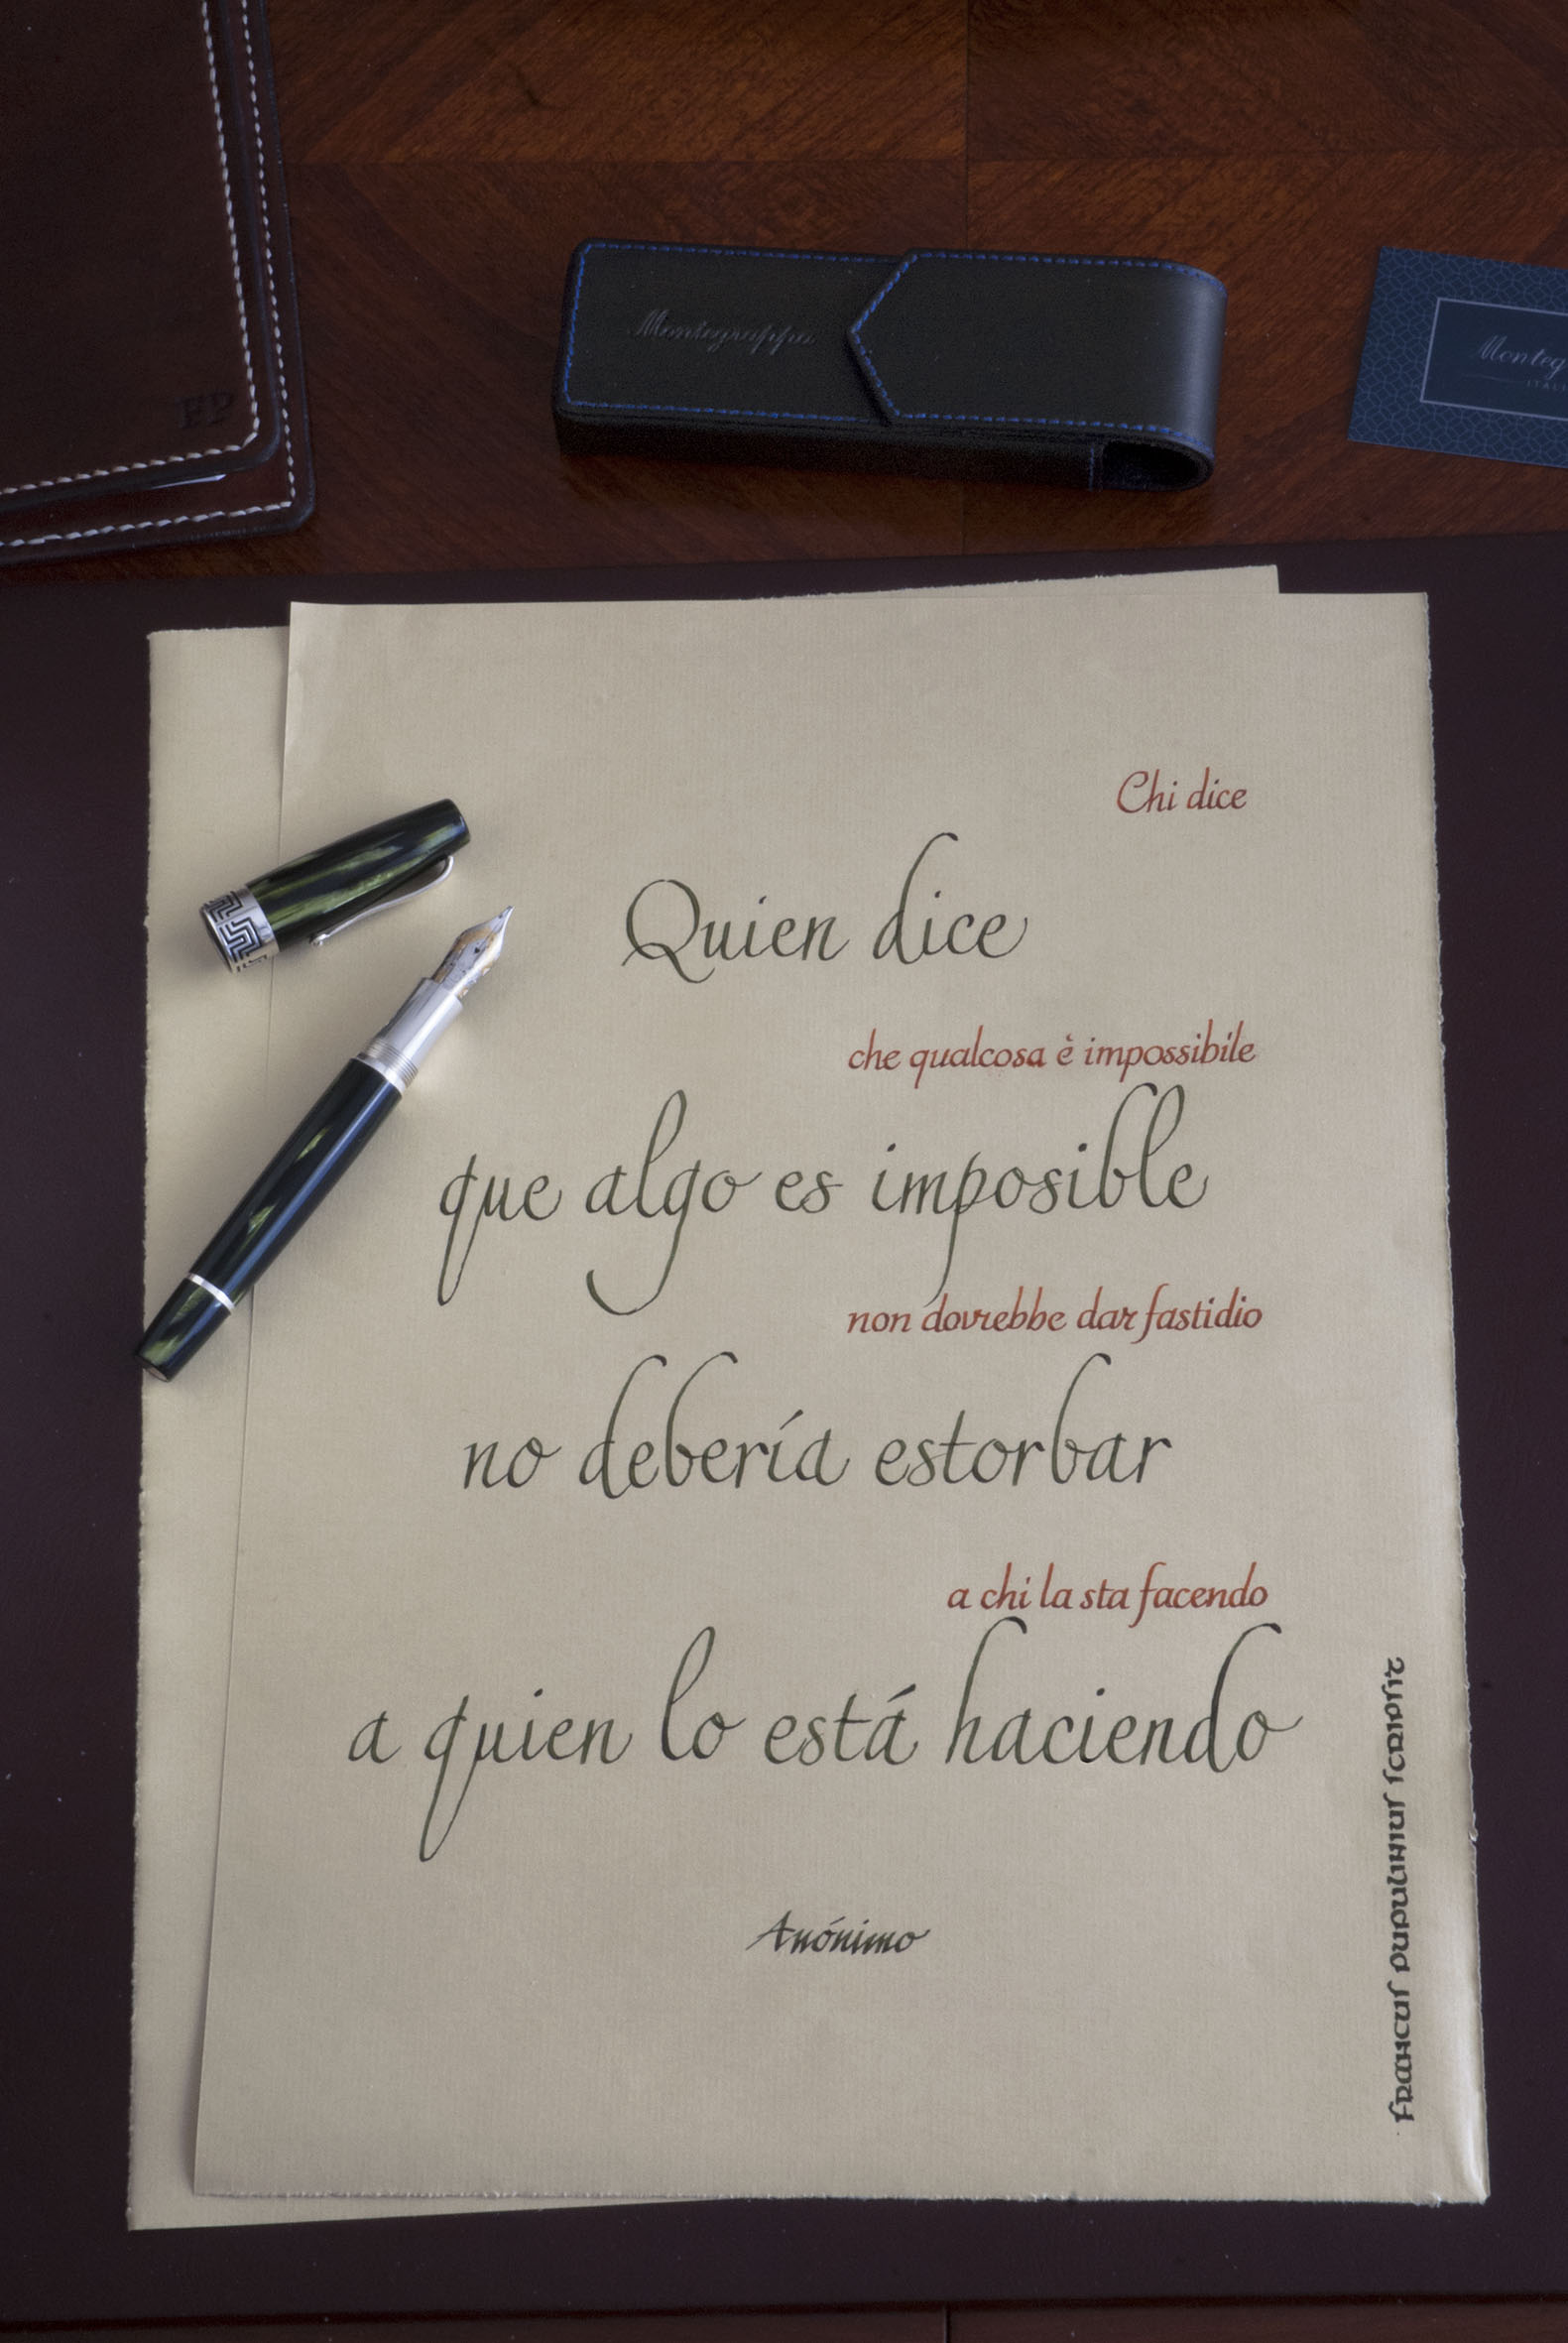 Montegrappa
Monteg
FP
Chi dice
Quien dice
che qualcosa è impossibile
que algo es imposible
non dovrebbe dar fastidio
no debería estorbar
a chi la sta facendo
a quien lo está haciendo
Anónimo
Francus Pupulinius scripsit